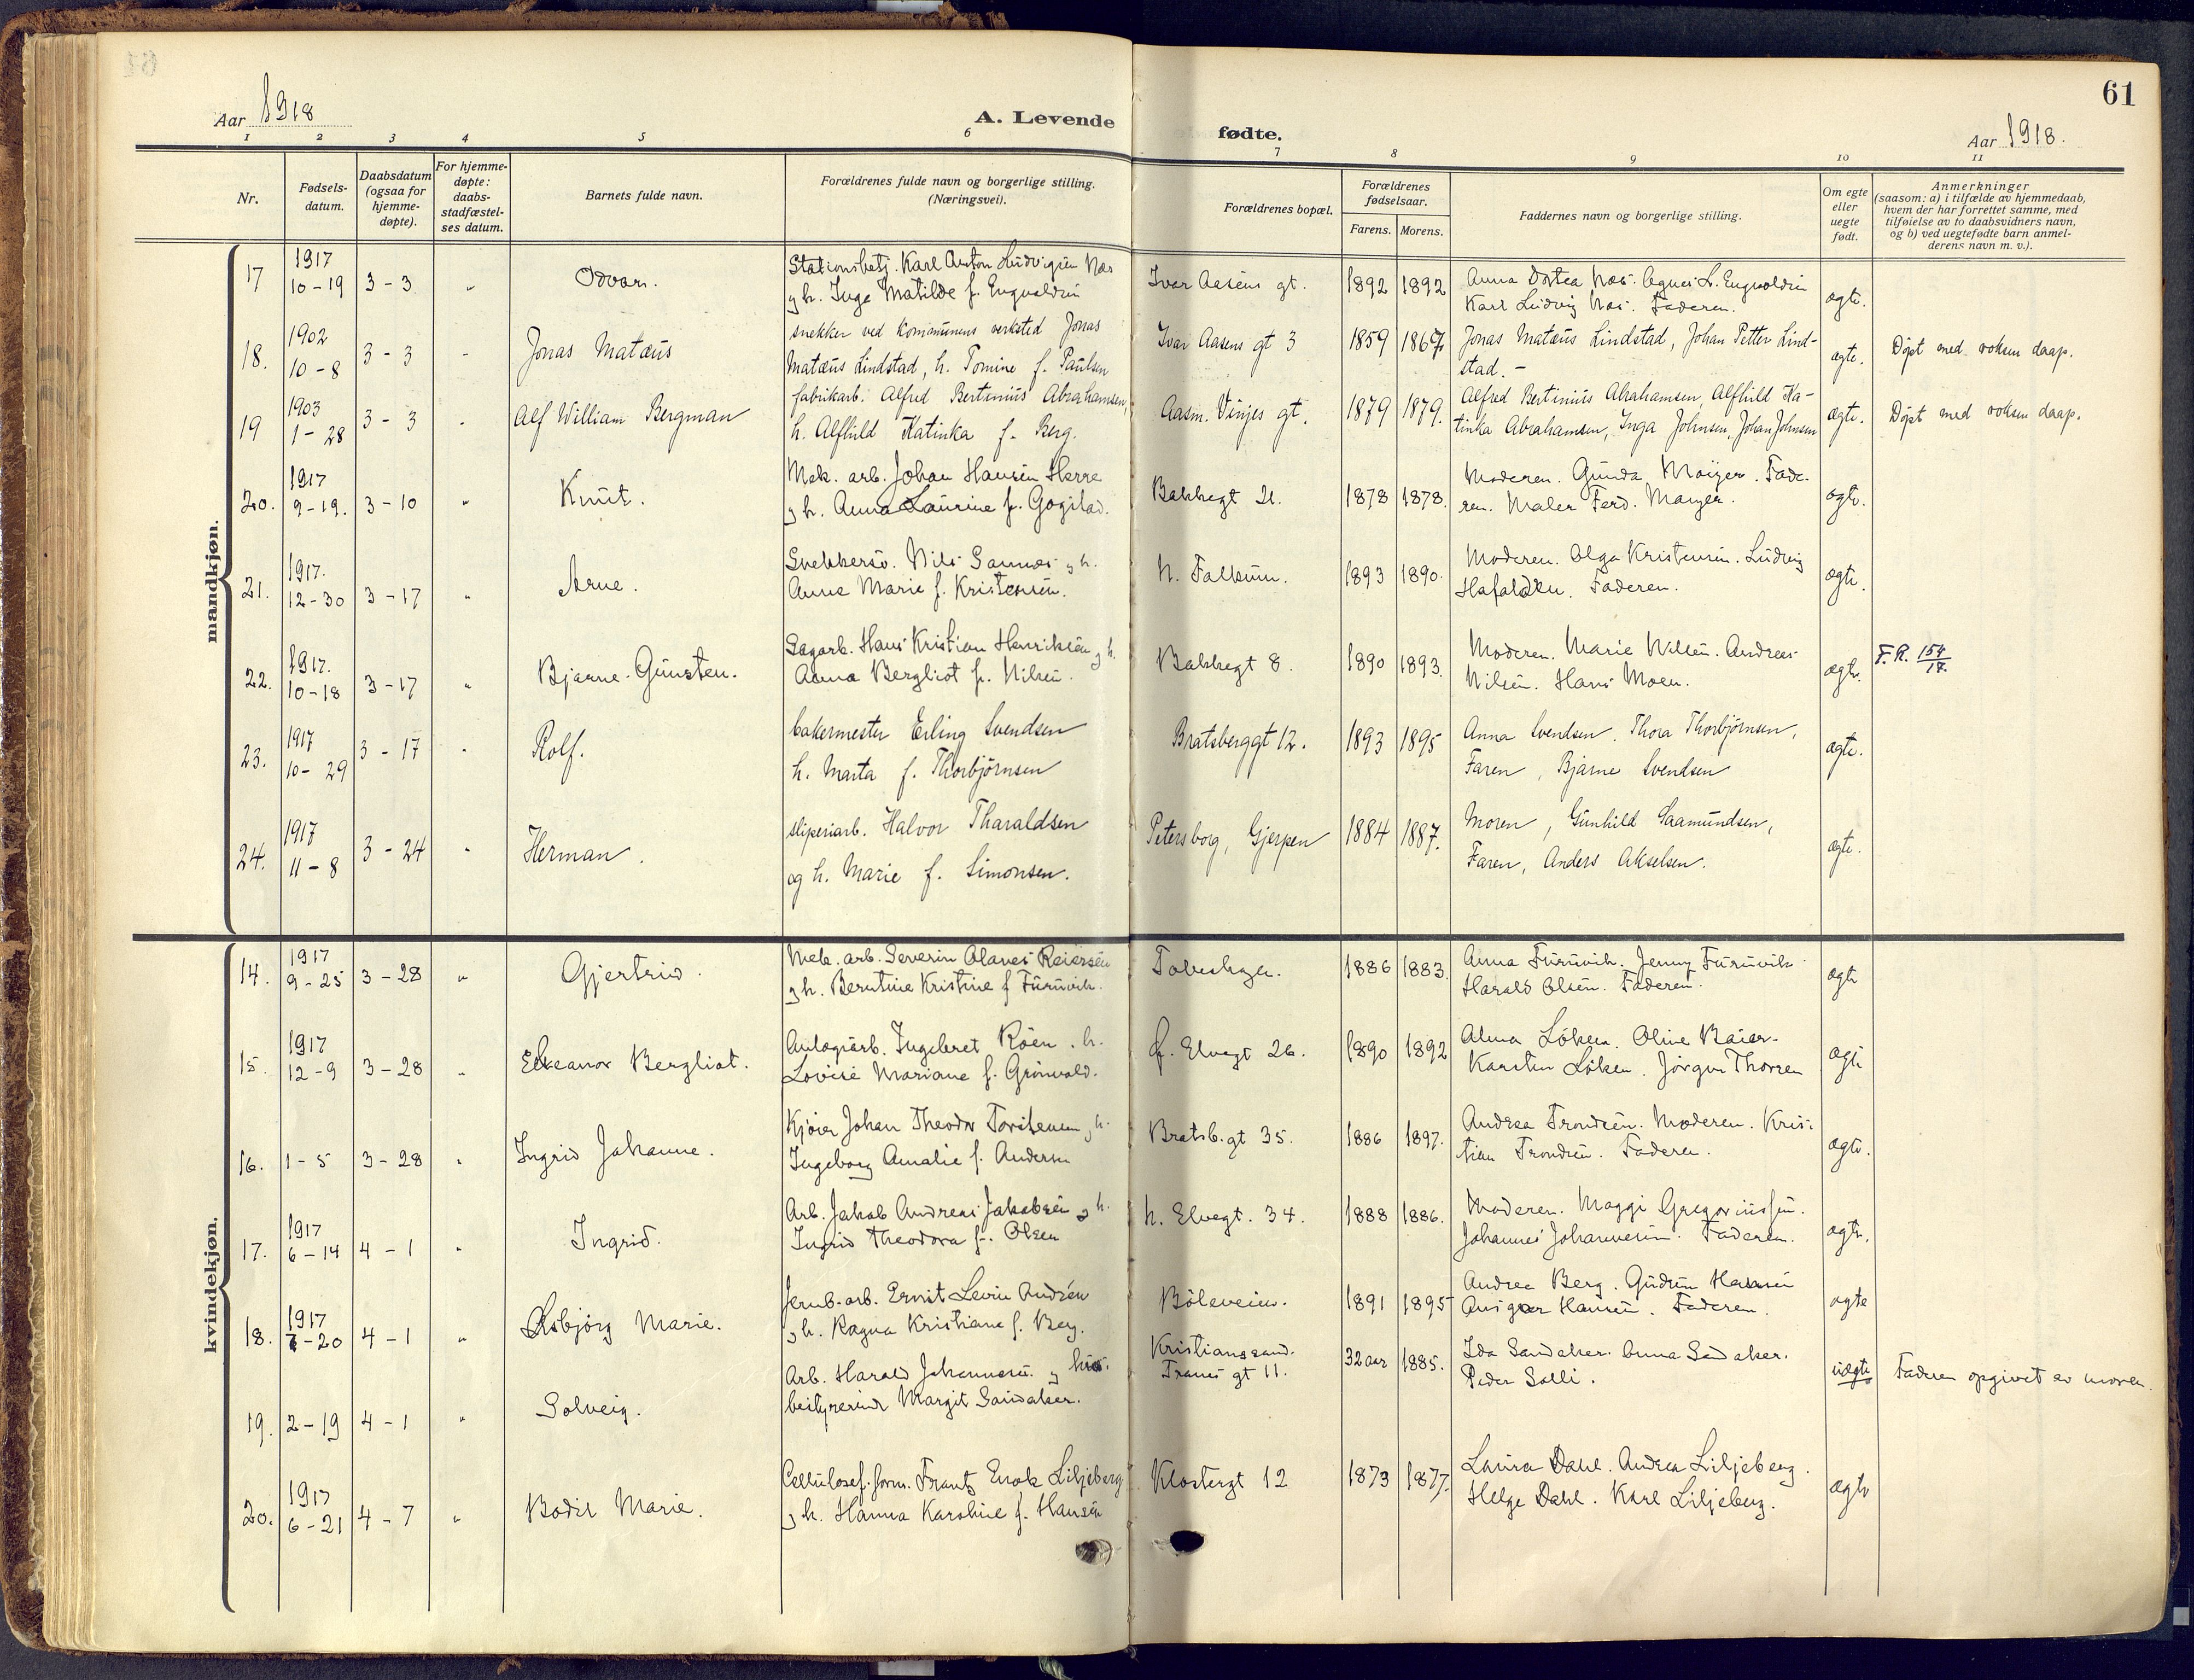 61
Aar 1918
A. Levende fødte.
Aar 1918.
1 2 3 4 5 6 7 8 9 10 11
Nr.
Fødsels-
datum.
Daabsdatum
(ogsaa for
hjemme-
døpte).
For hjemme-
døpte:
daabs-
stadfæstel-
ses datum.
Barnets fulde navn.
Forældrenes fulde navn og borgerlige stilling.
(Næringsvei).
Forældrenes bopæl.
Forældrenes
fødselsaar.
Farens. Morens.
Faddernes navn og borgerlige stilling.
Om egte
eller
uegte
født.
Anmerkninger
(saasom: a) i tilfælde av hjemmedaab,
hvem der har forrettet samme, med
tilføielse av to daabsvidners navn,
og b) ved uegtefødte barn anmel-
derens navn m. v.).
mandkjøn.
17 1917 10-19 3-3 " Odvar.
Stationsbetj. Karl Anton Ludvigsen Næs
og h. Inga Matilde f. Engvoldsen
Ivar Aasens gt. 1892 1892
Anna Dortea Næs. Agnes L. Engvoldsen
Karl Ludvig Næs. Faderen. ægte.
18. 1902 10-8 3-3 " Jonas Matæus
snekker ved kommunens verksted Jonas
Matæus Lindstad, h. Tomine f. Paulsen
Ivar Aasens gt 3 1859 1867.
Jonas Matæus Lindstad, Johan Petter Lind-
stad. - ægte. Døpt med voksen daap.
19 1903 1-28 3-3 " Alf William Bergman
fabrikarb. Alfred Bertinius Abrahamsen,
h. Alfhild Katinka f. Berg.
Aasm. Vinjes gt. 1879 1879.
Alfred Bertinius Abrahamsen, Alfhild Ka-
tinka Abrahamsen, Inga Johnsen, Johan Johnsen
ægte. Døpt med voksen daap.
20. 1917 9-19. 3-10 " Knut.
Mek. arb. Johan Hansen Herre
og h. Anna Laurine f. Gogstad.
Bakkegt 21. 1878 1878.
Moderen. Gunda Mayer. Fade-
ren. Maler Ferd. Mayer. ægte.
21. 1917. 12-30 3-17 " Arne.
Snekkersv. Nils Sannes og h.
Anna Marie f. Kristensen.
N. Falkum. 1893 1890.
Moderen. Olga Kristensen. Ludvig
Faderen. ægte.
22. 1917. 10-18 3-17 " Bjarne Gunsten.
Sagarb. Hans Kristian Henriksen og h.
Anna Bergliot f. Nilsen.
Bakkegt 8. 1890 1893.
Moderen. Marie Nilsen. Andreas
Nilsen. Hans Moen. ægte. F.R. 154/17.
23. 1917 10-29 3-17 " Rolf.
bakermester Erling Svendsen
h. Marta f. Thorbjørnsen
Bratsberggt 12. 1893 1895
Anna Svendsen, Thora Thorbjørnsen,
Faren, Bjarne Svendsen ægte.
24. 1917 11-8 3-24 " Herman.
sliperiarb. Halvor Tharaldsen
og h. Marie f. Simonsen.
Petersborg, Gjerpen 1884 1887.
Moren, Gunhild Saamundsen,
Faren, Anders Akselsen. ægte.
kvindekjøn.
14. 1917 9-25 3-28 " Gjertrid.
Mek. arb. Severin Olaves Reiersen
og h. Berntine Kristine f Furuvik.
1886 1883.
Anna Furuvik. Jenny Furuvik
Harald Olsen. Faderen. ægte
15. 1917 12-9 3-28 " Eleanor Bergliot.
Anlægsarb. Ingebret Röen. h.
Lovise Mariane f. Grönvold.
f. Elvegt 26. 1890 1892
Alma Löken. Oline Baier.
Karsten Löken. Jörgen Thorsen ægte
16. 1-5 3-28 " Ingrid Johanne.
Kjører Johan Theodor Torstensen og h.
Ingeborg Amalie f. Andersen
Bratsb.gt 35. 1886 1897.
Andrea Trondsen. Moderen. Kris-
tian Trondsen. Faderen. ægte.
17. 1917 6-14 4-1 " Ingrid.
Arb. Jakob Andreas Jakobsen og h.
Ingrid Theodora f. Olsen
N. Elvegt. 34. 1888 1886.
Moderen. Maggi Gregoriussen.
Johannes Johannesen. Faderen. ægte.
18. 1917 7-20 4-1 " Asbjørg Marie.
Jernb.arb. Ernst Levin Andrén
og h. Ragna Kristiane f. Berg.
Böleveien. 1891 1895
Andrea Berg. Gudrun Hansen
Ansgar Hansen. Faderen. ægte
19. 2-19 4-1 " Solveig.
Arb. Harald Johannesen og hus-
bestyrerinde Margit Sandaker.
Kristianssand.
gt 11. 32 aar 1885.
Ida Sandaker. Anna Sandaker.
Peder Solli. uægte Faderen opgivet av moren.
20. 1917 6-21 4-7 " Bodil Marie.
Cellulosef. form. Frants Enok Liljeberg
og h. Hanna Karoline f. Hansen
Klostergt 12 1873 1877.
Laura Dahl. Andrea Liljeberg.
Helge Dahl. Karl Liljeberg. ægte